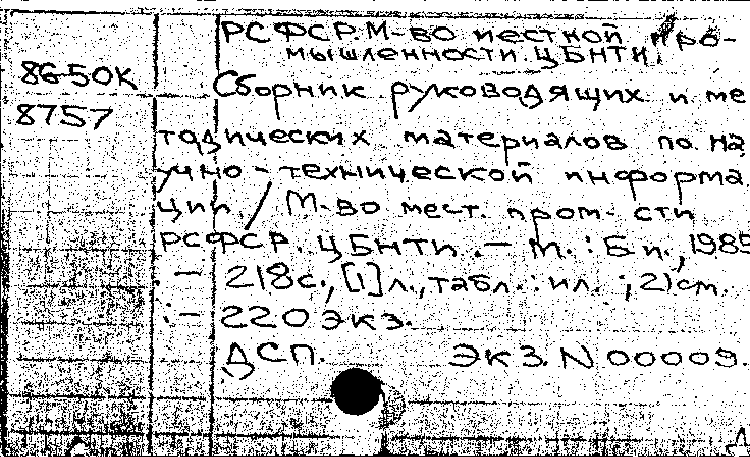 РСФСР. М-во местной про-
мышленности. ЦБНТИ.
86-50К
Сборник руководящих и ме
8757
тодических материалов по на
учно-технической информа
ции. / М-во мест. пром-сти
РСФСР. ЦБНТИ. - М. : Б.и., 1985
- 218с., [1]л., табл. : ил. ; 21см.
: - 220 экз.
ДСП. Экз. N 00009.